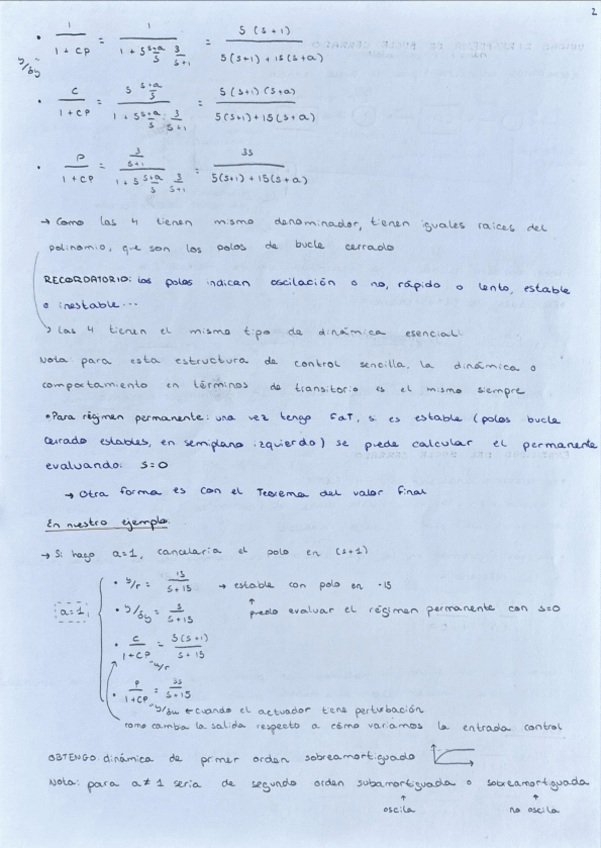 2
• 1/(1+CP) = 1/(1+5 (s+a)/s 3/(s+1)) = s(s+1)/(s(s+1)+15(s+a))
y/δy
• C/(1+CP) = (5 (s+a)/s)/(1+5 (s+a)/s · 3/(s+1)) = 5(s+1)(s+a)/(s(s+1)+15(s+a))
• P/(1+CP) = (3/(s+1))/(1+5 (s+a)/s 3/(s+1)) = 3s/(s(s+1)+15(s+a))
→ Como las 4 tienen mismo denominador, tienen iguales raíces del
polinomio, que son los polos de bucle cerrado
RECORDATORIO: los polos indican oscilación o no, rápido o lento, estable
o inestable...
→ las 4 tienen el mismo tipo de dinámica esencial
Nota: para esta estructura de control sencilla, la dinámica o
comportamiento en términos de transitorio es el mismo siempre
• Para régimen permanente: una vez tengo FdT, si es estable (polos bucle
cerrado estables, en semiplano izquierdo) se puede calcular el permanente
evaluando: s=0
→ Otra forma es con el Teorema del valor final
En nuestro ejemplo:
→ Si hago a=1, cancelaría el polo en (s+1)
• y/r = 15/(s+15) → estable con polo en -15
a=1, • y/δy = s/(s+15) ↑ puedo evaluar el régimen permanente con s=0
• C/(1+CP) = 5(s+1)/(s+15)
u/r
• P/(1+CP) = 3s/(s+15)
y/δu ← cuando el actuador tiene perturbación
como cambia la salida respecto a cómo variamos la entrada control
OBTENGO: dinámica de primer orden sobreamortiguado
Nota: para a≠1 sería de segundo orden subamortiguada o sobreamortiguada
↑ ↑
oscila no oscila